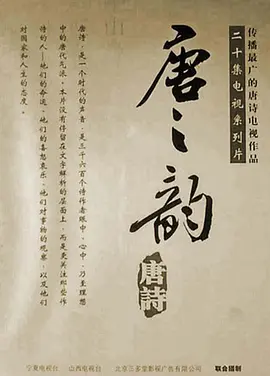 传播最广的唐诗电视作品
二十集电视系列片
唐之韵
唐詩
唐诗，是一个时代的声音，是三千六百个诗作者眼中、心中、乃至理想
中的唐代气派。本片没有停留在文字解析的层面上，而是更关注那些作
诗的人—他们的命运、他们的喜怒哀乐、他们对事物的观察、以及他们
对国家和人生的态度。
宁夏电视台 山西电视台 北京三多堂影视广告有限公司 联合摄制